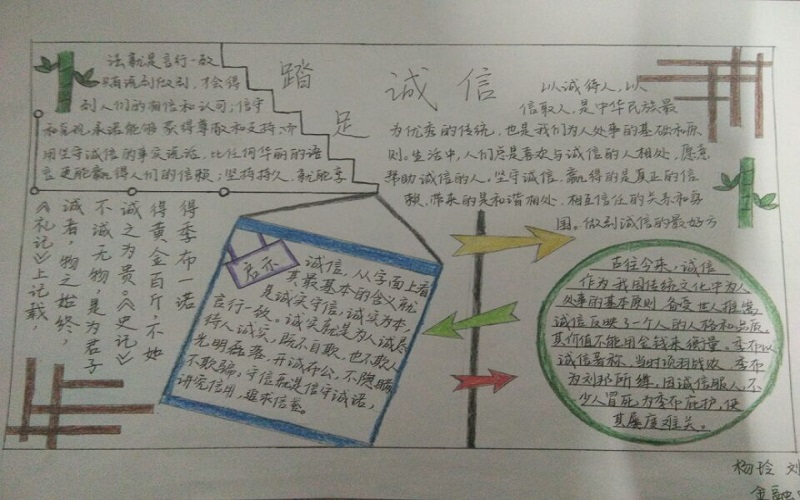 法就是言行一致
只有说到做到,才会得
到人们的相信和认可;信守
和兑现承诺能够获得尊敬和支持,亦
用坚守诚信的事实说话,比任何华丽的语
言更能赢得人们的信赖;坚持持久,就能享
踏
足
诚信
以诚待人,以
信取人,是中华民族最
为优秀的传统,也是我们为人处事的基础和原
则。生活中,人们总是喜欢与诚信的人相处,愿意
帮助诚信的人。坚守诚信,赢得的是真正的信
赖,带来的是和谐相处、相互信任的关系和
围。做到诚信的最好方
得季布一诺
得黄金百斤,不如
诚之为贵。《史记》
不诚无物,是为君子
诚者,物之始终,
《礼记》上记载,
启示
诚信,从字面上看
其最基本的含义就
是诚实守信,诚实为本,
言行一致。诚实就是为人诚恳
待人诚实,既不自欺,也不欺人
光明磊落、开诚布公,不隐瞒
不欺骗。守信就是信守诺
讲究信用,
古往今来,诚信
作为我国传统文化中为人
处事的基本原则,备受世人推崇
诚信反映了一个人的人格和品质
其价值不能用金钱来衡量。季布以
诚信著称,当时项羽战败,季布
为刘邦所缚,因诚信服人,不
少人冒死为季布庇护,使
其屡度难关。
杨玲 刘
金融